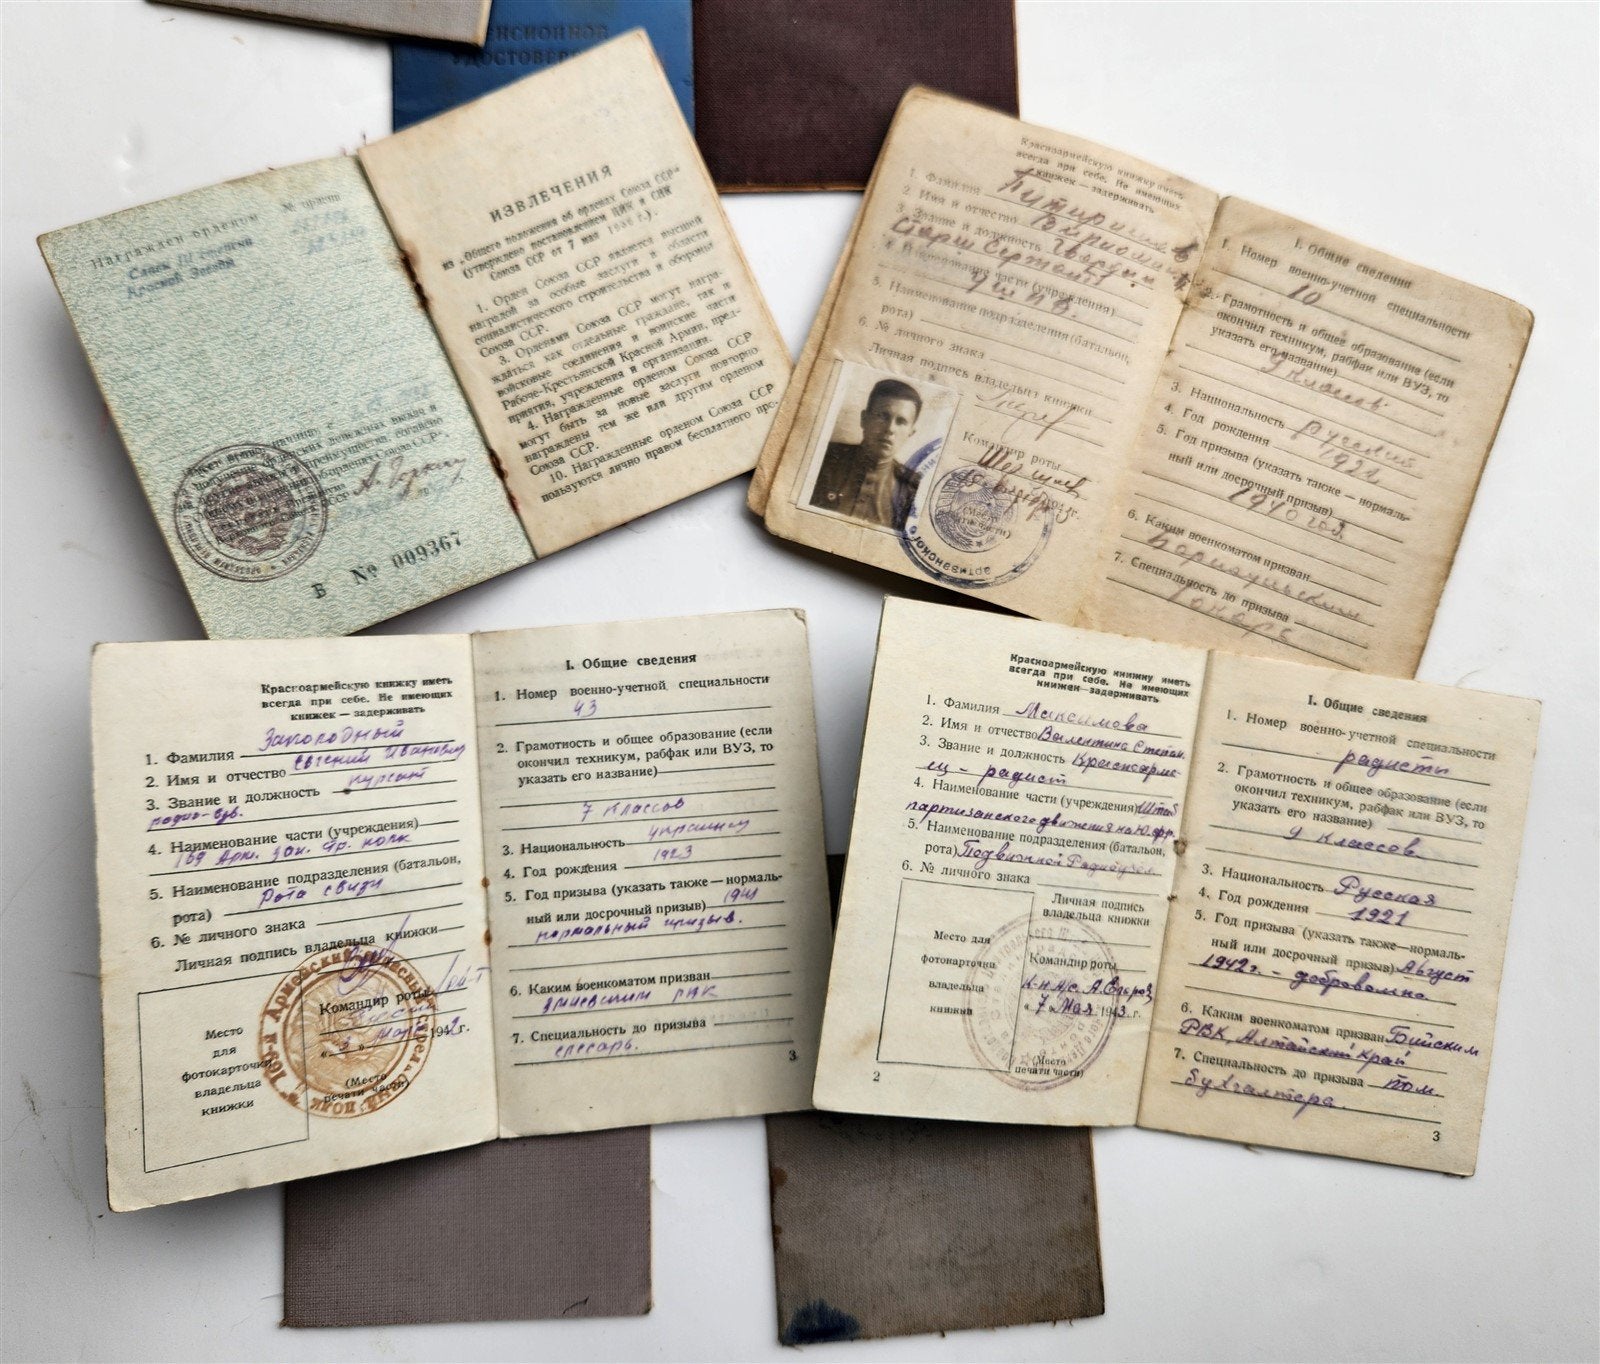 ПЕНСИОННОЕ
УДОСТОВЕРЕ
Награжден орденом № ордена
Славы III степени
Красной Звезды
А. Горкин
Б № 009367
ИЗВЛЕЧЕНИЯ
из „Общего положения об орденах Союза ССР“
(Утверждено постановлением ЦИК и СНК
Союза ССР от 7 мая 1936 г.).
1. Орден Союза ССР является высшей
наградой за особые заслуги в области
социалистического строительства и обороны
Союза ССР.
3. Орденами Союза ССР могут награ-
ждаться как отдельные граждане, так и
войсковые соединения и воинские части
Рабоче-Крестьянской Красной Армии, пред-
приятия, учреждения и организации.
4. Награжденные орденом Союза ССР
могут быть за новые заслуги повторно
награждены тем же или другим орденом
Союза ССР.
10. Награжденные орденом Союза ССР
пользуются лично правом бесплатного про-
Красноармейскую книжку иметь
всегда при себе. Не имеющих
книжек — задерживать
1. Фамилия
2. Имя и отчество
3. Звание и должность Гвардии
Старш Сержант
4. Наименование части (учреждения)
5. Наименование подразделения (батальон,
рота)
6. № личного знака
Личная подпись владельца книжки
Командир роты
1943 г.
(Место
печати части)
I. Общие сведения
1. Номер военно-учетной специальности
10
2. Грамотность и общее образование (если
окончил техникум, рабфак или ВУЗ, то
указать его название)
9 классов
3. Национальность русский
4. Год рождения 1921
5. Год призыва (указать также — нормаль-
ный или досрочный призыв)
1940 год
6. Каким военкоматом призван
Барнаульским
7. Специальность до призыва
токарь
Красноармейскую книжку иметь
всегда при себе. Не имеющих
книжек — задерживать
1. Фамилия Загородный
2. Имя и отчество Евгений Иванович
3. Звание и должность курсант
радио-взв.
4. Наименование части (учреждения)
169 Арм. зап. стр. полк
5. Наименование подразделения (батальон,
рота) Рота связи
6. № личного знака
Личная подпись владельца книжки
Командир роты
„3“ 1942 г.
Место
для
фотокарточки
владельца
книжки
(Место
печати части)
I. Общие сведения
1. Номер военно-учетной специальности
43
2. Грамотность и общее образование (если
окончил техникум, рабфак или ВУЗ, то
указать его название)
7 классов
3. Национальность украинец
4. Год рождения 1923
5. Год призыва (указать также — нормаль-
ный или досрочный призыв) 1941
нормальный призыв.
6. Каким военкоматом призван
Змиевским РВК
7. Специальность до призыва
слесарь.
3
Красноармейскую книжку иметь
всегда при себе. Не имеющих
книжек — задерживать
1. Фамилия Максимова
2. Имя и отчество Валентина Степан.
3. Звание и должность Красноарме
ец - радист
4. Наименование части (учреждения) Штаб
партизанского движения на Ю. фр.
5. Наименование подразделения (батальон,
рота) Подвижной Радиоузел
6. № личного знака
Личная подпись
владельца книжки
Место для
фотокарточки
владельца
книжки
Командир роты
К-н А/с. А. Егоров
„7“ Мая 1943 г.
(Место
печати части)
2
I. Общие сведения
1. Номер военно-учетной специальности
радисты
2. Грамотность и общее образование (если
окончил техникум, рабфак или ВУЗ, то
указать его название)
9 классов
3. Национальность Русская
4. Год рождения 1921
5. Год призыва (указать также — нормаль-
ный или досрочный призыв) Август
1942 г. - добровольно
6. Каким военкоматом призван Бийским
РВК, Алтайский край
7. Специальность до призыва — пом.
бухгалтера.
3